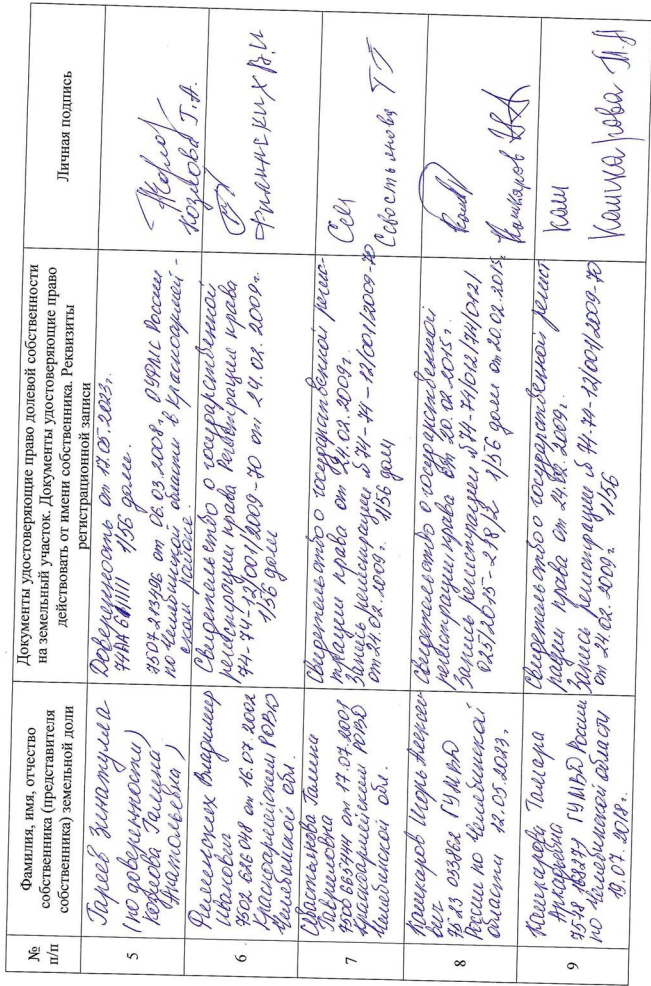 №
п/п
Фамилия, имя, отчество
собственника (представителя
собственника) земельной доли
Документы удостоверяющие право долевой собственности
на земельный участок. Документы удостоверяющие право
действовать от имени собственника. Реквизиты
регистрационной записи
Личная подпись
5
Гареев Зинатулла
(по доверенности
Козлова Галина
Анатольевна)
Доверенность от 17.05.2023г.
1/56 доли.
7507 213496 от 06.03.2008г. ОУФМС России
по Челябинской области в Красноармей-
ском районе.
Козлова Г.А.
6
Филинских Владимир
Иванович
7502 626 048 от 16.07.2002
Красноармейским РОВД
Челябинской обл.
Свидетельство о государственной
регистрации права Регистрации права
74-74-12/001/2009-70 от 24.02.2009г.
1/56 доли
Филинских В.И
7
Севостьянова Галина
Гавриловна
7500 665744 от 17.07.2001
Красноармейским РОВД
Челябинской обл.
Свидетельство о государственной регис-
трации права от 24.02.2009г.
Запись регистрации №74-74-12/001/2009-70
от 24.02.2009г. 1/56 доли
Сев
Севостьянова Т Г
8
Кашкаров Игорь Алексее-
вич
7523 033862 ГУМВД
России по Челябинской
области 12.05.2023г.
Свидетельство о государственной
регистрации права от 20.02.2015г.
Запись регистрации №74-74/012/74/012/
025/2015-218/2 1/56 доли от 20.02.2015г.
Кашкаров
9
Кашкарова Тамара
Аркадьевна
7518 168279 ГУМВД России
по Челябинской области
19.07.2018г.
Свидетельство о государственной регист
рации права от 24.02.2009г.
Запись регистрации №74-74-12/001/2009-70
от 24.02.2009г 1/56
Каш
Кашкарова Т.А